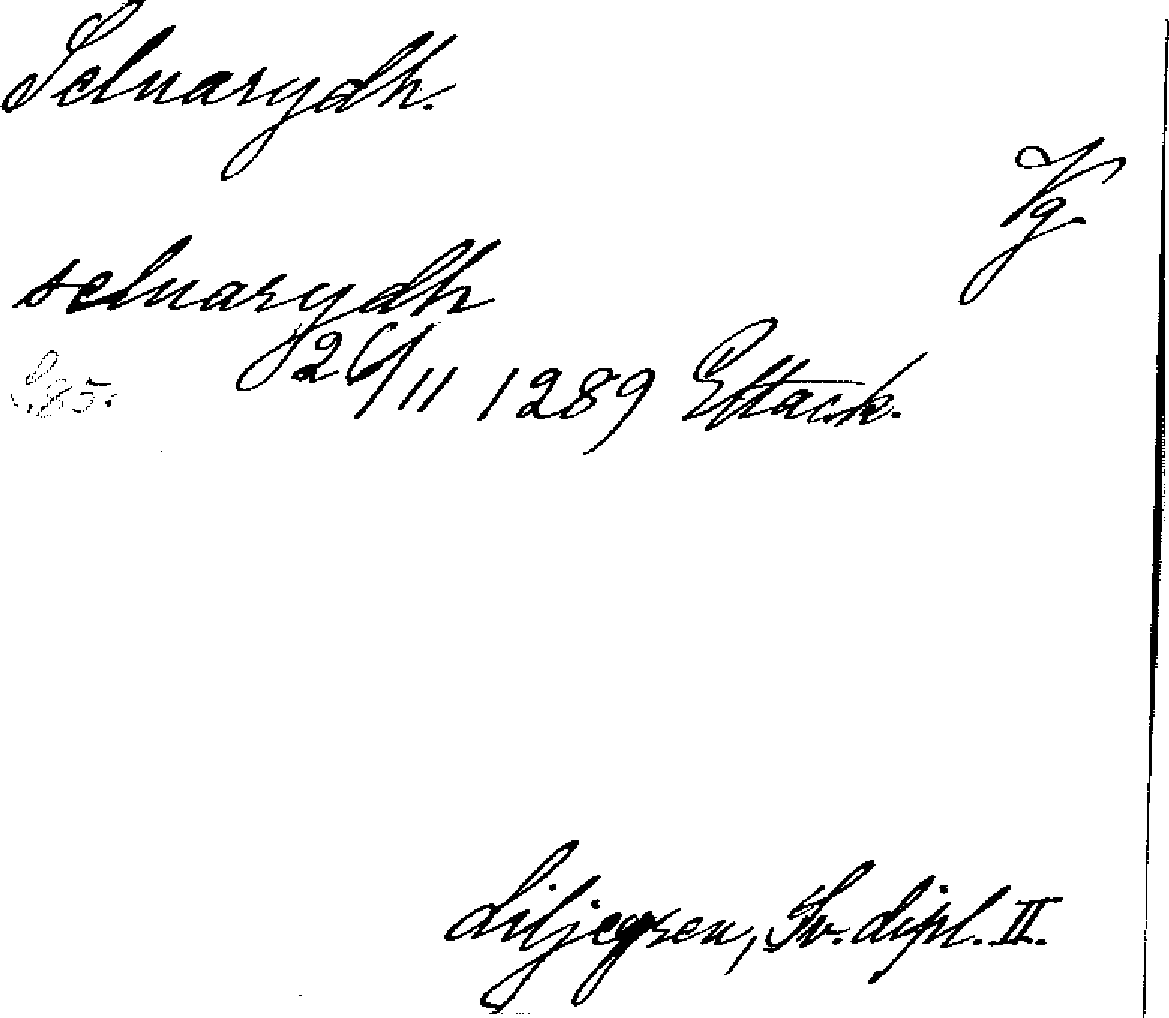 Seluarydh.
Vg.
seluarydh
S. 85.
26/11 1289 Eftack.
Liljegren, Sv. dipl. II.